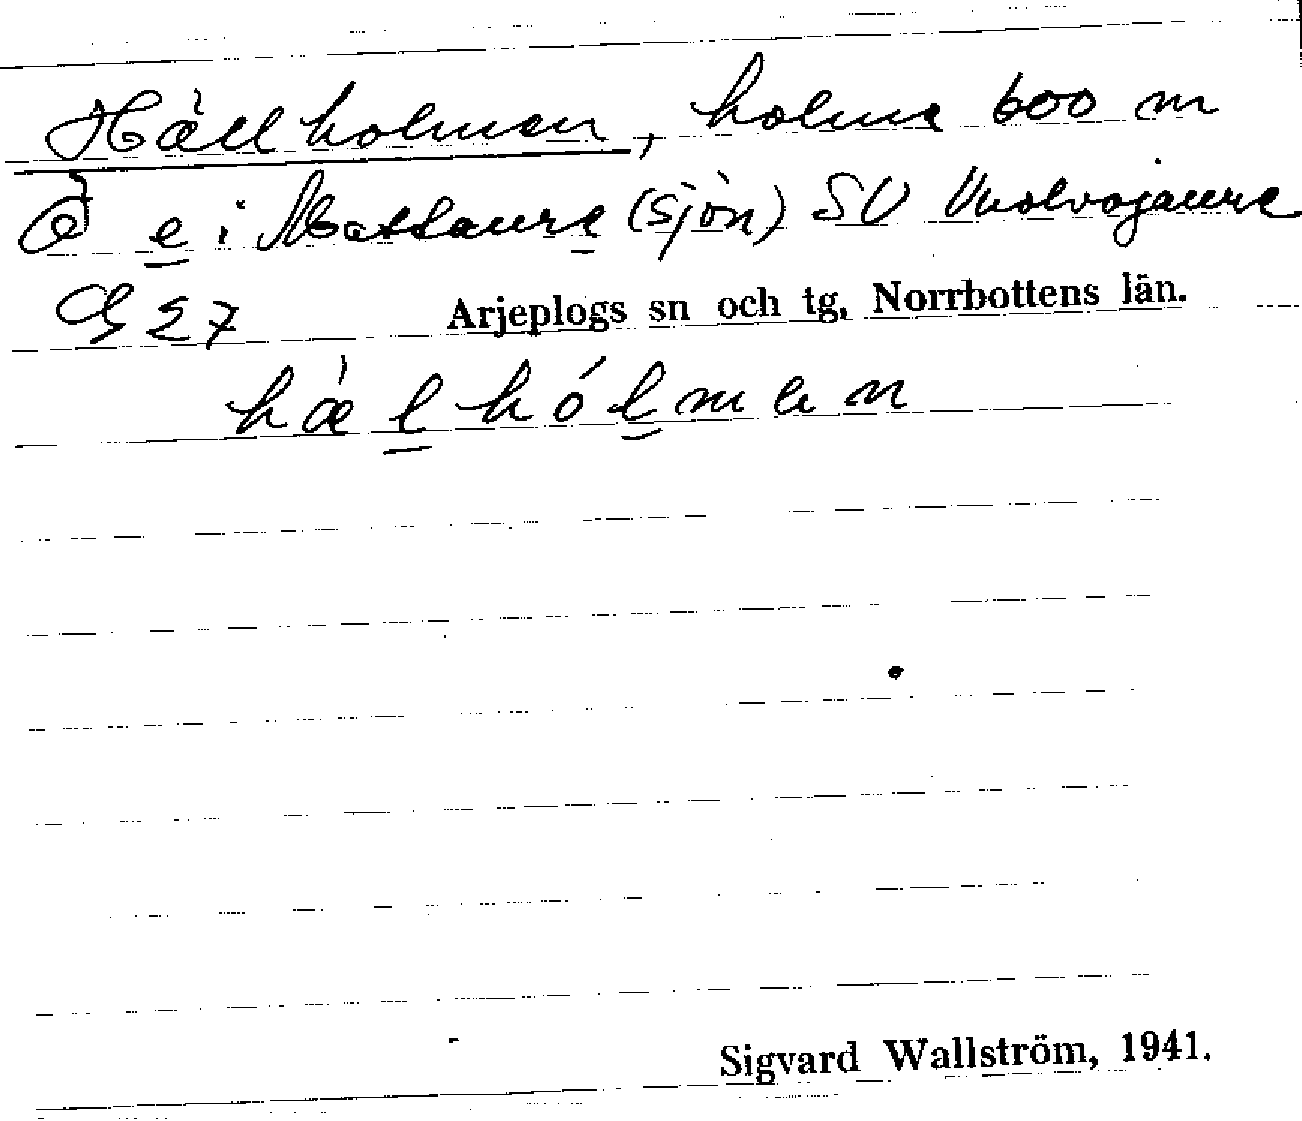 Hällholmen, holme 600 m
Ö e i Mattaure (sjön) SV Vuolvojaure
G 27 Arjeplogs sn och tg, Norrbottens län.
hæ̀lhólmen
Sigvard Wallström, 1941.